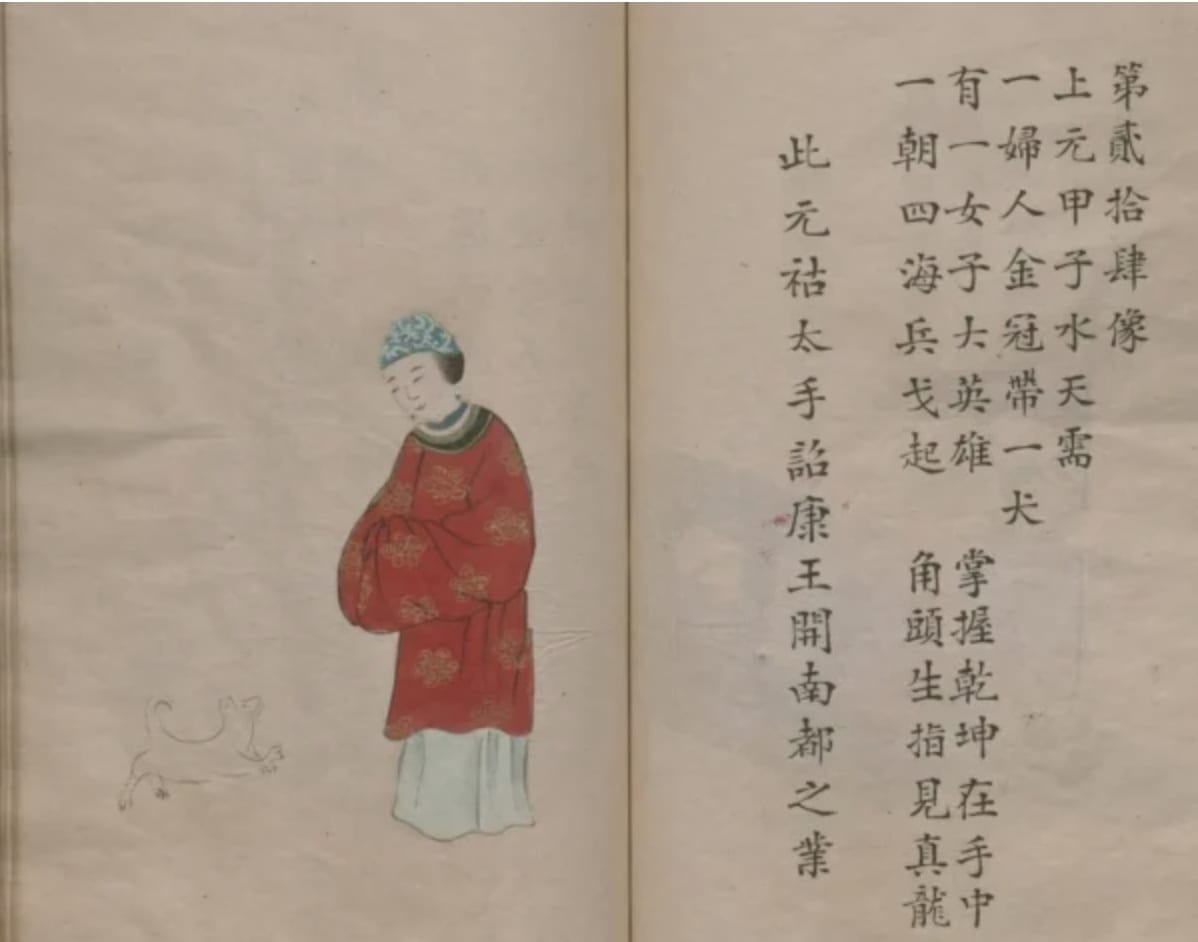 第貳拾肆像
上元甲子水天需
一婦人金冠帶一犬
有一女子大英雄 掌握乾坤在手中
一朝四海兵戈起 角頭生指見真龍
此元祜太手詔康王開南都之業